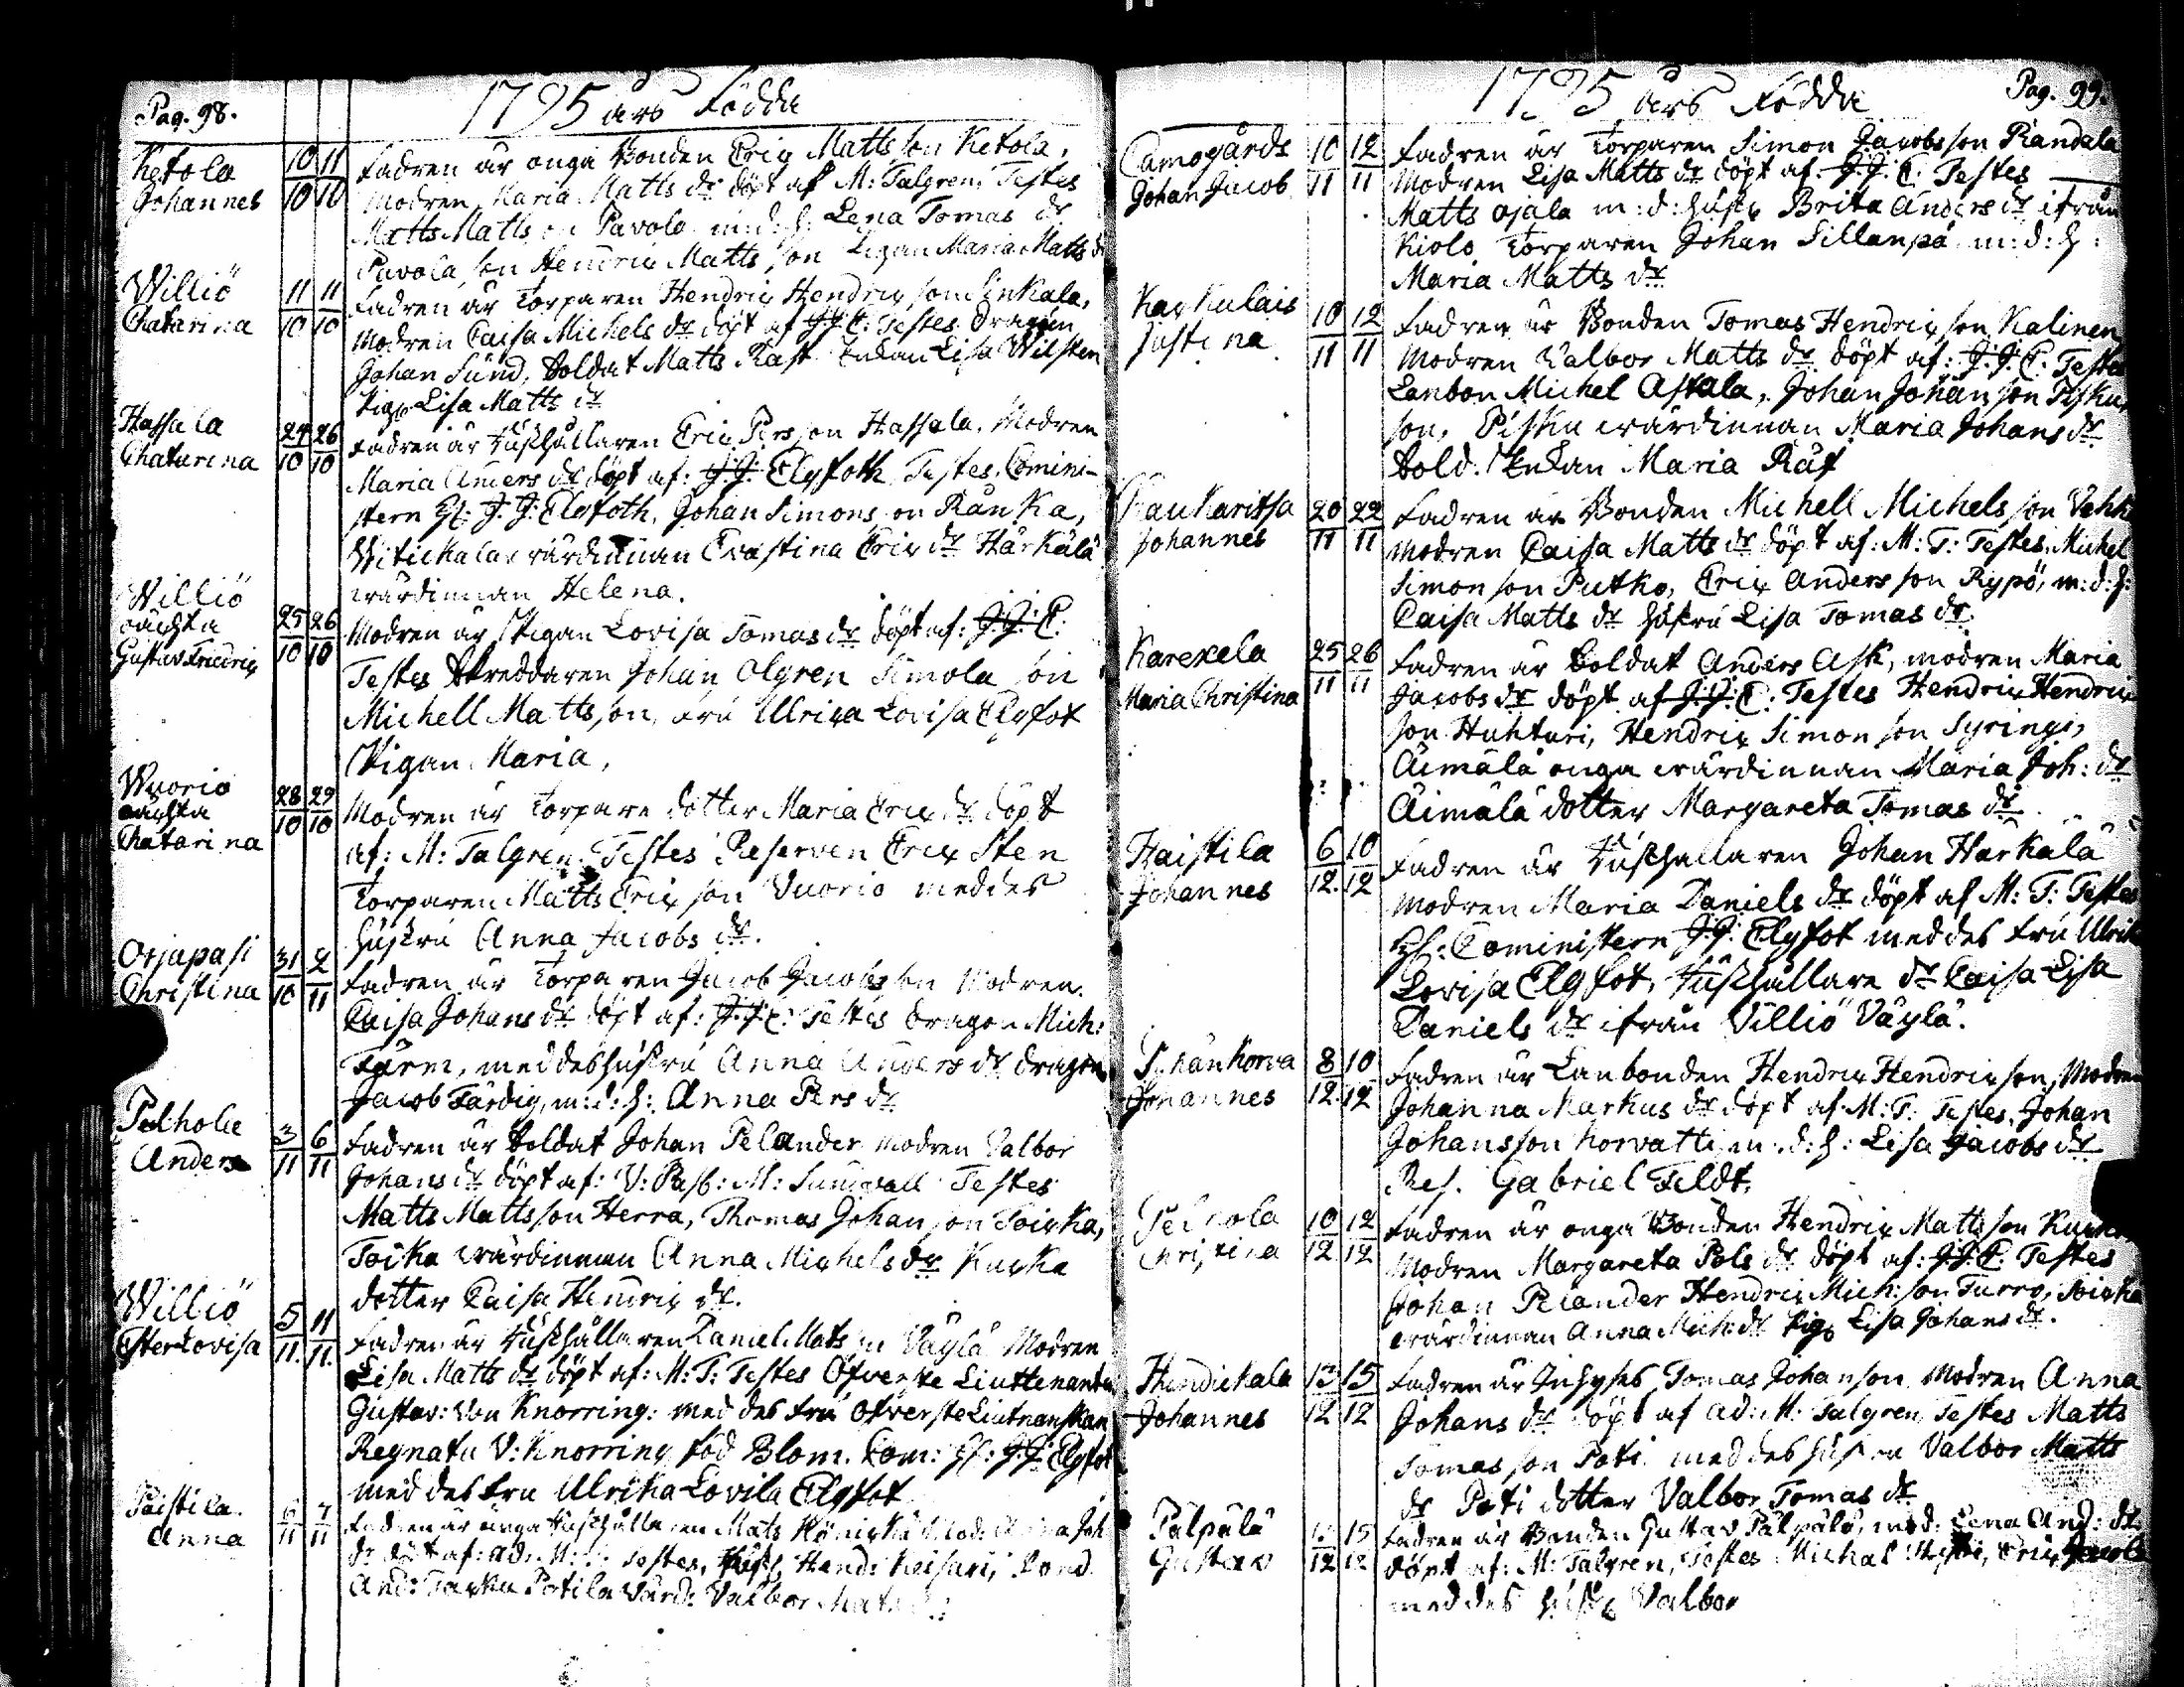 Pag. 98.
1795 års Födda
Ketola
Johannes
10 11
10 10
Fadren är onga Bonden Eric Mattsson Ketola,
Modren Maria Matts dr döpt af M: Talgren. Testes
Matts Mattsson Pavola m: d: h: Lena Tomas dr
Pavola son Hendric Mattsson Pigan Maria Matts dr
Williö
Chatarina
11 11
10 10
Fadren är Torparen Hendric Hendricsson Sinkala,
Modren Caisa Michels dr döpt af J. J. E. Testes Dragon
Johan Sund, Soldat Matts Rast Enkan Lisa Wilsten
Pig: Lisa Matts dr
Hassala
Chatarina
24 26
10 10
Fadren är Rusthållaren Eric Persson Hassala. Modren
Maria Anders dr döpt af: J. J. Elgfoth Testes. Comini-
stern H: J. J: Elgfoth. Johan Simonsson Rauka,
Witickala wärdinnan Cristina Eric dr Härkälä
wärdinnan Helena.
Williö
oächta
Gustav Friedric
25 26
10 10
Modren är Pigan Lovisa Tomas dr döpt af: J. J. E.
Testes Skreddaren Johan Olgren Simola son
Michell Mattsson, Fru Ulrica Lovisa Elgfot
Pigan Maria,
Wuorio
oächta
Chatarina
28 29
10 10
Modren är Torpare dotter Maria Eric dr döpt
af: M: Talgren. Testes Reserven Eric Sten
Torparen Matts Ericsson Vuorio med des
hustru Anna Jacobs dr.
Orjapasi
Christina
31 2
10 11
Fadren är Torparen Jacob Jacobsson Modren.
Caisa Johans dr döpt af: J. J. E: Testes Dragon Mich:
Färm, med des hustru Anna Anders dr Dragon
Jacob Färdig, m: d: h: Anna Pers dr
Pelhola
Anders
3 6
11 11
Fadren är Soldat Johan Pelander modren Valbor
Johans dr döpt af: V: Past: M: Sundvall Testes
Matts Mattsson Herra, Thomas Johansson Toicka,
Toika wärdinnan Anna Michels dr Kurka
dotter Caisa Hendric dr.
Williö
Ester Lovisa
5 11
11. 11.
Fadren är Rusthållaren Daniel Matsson Väylä Modren
Lisa Matts dr döpt af: M: T: Testes Öfverste Liuttenanten
Gustav: von Knorring: med des fru Öfverste Liutnanskan
Regnata V: Knorring född Blom. Com: H: J. J. Elgfot
med des fru Ulrika Lovisa Elgfot
Paistila.
Anna
6 7
11 11
Fadren är unga Rusthållaren Mats Mod: Anna Joh
dr döpt af: ad: M: T: Testes, Hend: Keisari, Bond
And: Potila Värd: Valbor Mats dr
Pag. 99.
1795 års Födda
Camogårds
Johan Jacob
10 12
11 11
Fadren är Torparen Simon Jacobsson Randala
Modren Lisa Matts dr döpt af: J. J. E. Testes
Matts Ojala m: d: hustr Brita Anders dr ifrån
Kiolo Torparen Johan Sillanpä m: d: h:
Maria Matts dr
Karkulais
Justina
10 12
11 11
Fadren är Bonden Tomas Hendricsson Kalinen
Modren Valbor Matts dr döpt af: J. J. E. Testes
Lanbon Michel Astala, Johan Johansson Pisku
son, Pisku wärdinnan Maria Johans dr
Sold. Enkan Maria Räf
Raukaritsa
Johannes
20 22
11 11
Fadren är Bonden Michell Michelsson Vehk
Modren Caisa Matts dr döpt af: M: T: Testes. Michel
Simonsson Putko, Eric Andersson Rypö, m: d: h:
Caisa Matts dr hustru Lisa Tomas dr
Karexela
Maria Christina
25 26
11 11
Fadren är Soldat Anders Ask, modren Maria
Jacobs dr döpt af J. J. E: Testes Hendric Hendric
son Huhturi, Hendric Simonsson Syringi,
Äimälä onga wärdinnan Maria Joh: dr
Äimälä dotter Margareta Tomas dr
Haistila
Johannes
6 10
12. 12
Fadren är Rusthallaren Johan Härkälä
Modren Maria Daniels dr döpt af M: T: Testes
H: Cominístern J. J. Elgfot med des fru Ulrik
Lovisa Elgfot, Rusthållare dr Caisa Lisa
Daniels dr ifrån Villiö Väylä.
Johannes
8 10
12. 12
Fadren är Lanbonden Hendric Hendricsson, Modren
Johanna Markus dr döpt af. M: T: Testes. Johan
Johansson Korvatti m: d: h: Lisa Jacobs dr
Res. Gabriel Feldt,
Pelhola
Christina
10 12
12 12
Fadren är onga Bonden Hendric Mattsson
Modren Margareta Pols dr döpt af: J. J. E. Testes
Johan Pelander Hendric Mich:son Turro, Toicka
wärdinnan Anna Mich: dr Pig: Lisa Johans dr.
Hendickala
Johannes
13 15
12 12
Fadren är Inhyses Tomas Johansson Modren Anna
Johans dr döpt af ad: M: Talgren Testes Matts
Tomasson Poti med des hustru Valbor Matts
dr Poti dotter Valbor Tomas dr
Pälpälä
Gustav
15
12 12
Fadren är Bonden Gustav Pälpälä, mod: Lena And: dr
döpt af: M: Talgren, Testes Michal Eric Jacobs
med des hustr Valbor